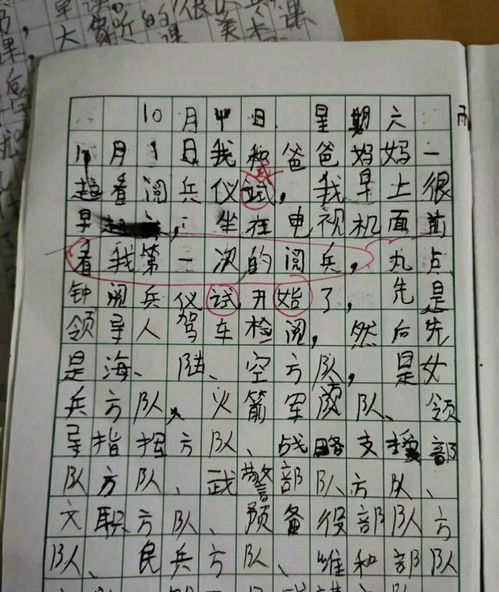 10月 日 星期六 雨
10月1日我和爸爸妈妈一
起看阅兵仪试，我早上很
早起床，坐在电视机面前
看我第一次的阅兵，九点
钟阅兵仪试开始了，先是
领导人驾车检阅，然后先
是海、陆、空方队，是女
兵方队、火箭军队、领
导指挥方队、战略支援部
队方队、武警部队方队、
文职方队、预备役部队方
队、民兵方队、维和部队